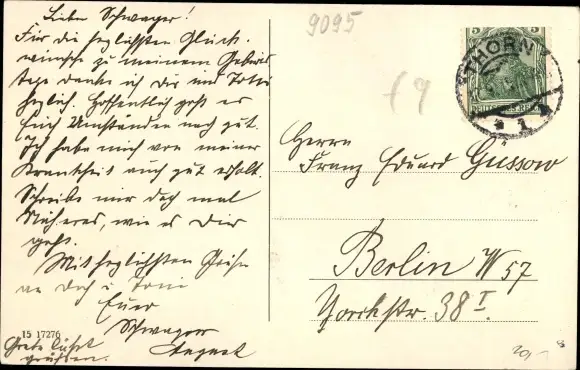 Lieber Schwager!
Für die herzlichsten Glück-
wünsche zu meinem Geburts
tage danke ich Dir und Toni
herzlich. Hoffentlich geht es
Euch Umständen nach gut.
Ich habe mich von meiner
Krankheit auch gut erholt.
Schreibe mir doch mal
Näheres, wie es Dir
geht.
Mit herzlichsten Grüßen
an Dich u. Toni
Euer
Schwager
August
Grete läßt
grüßen.
15 17276
9095
5 5
THORN
1
Herrn
Franz Eduard Gussow
Berlin W 57
Yorckstr. 38 I.
20,-